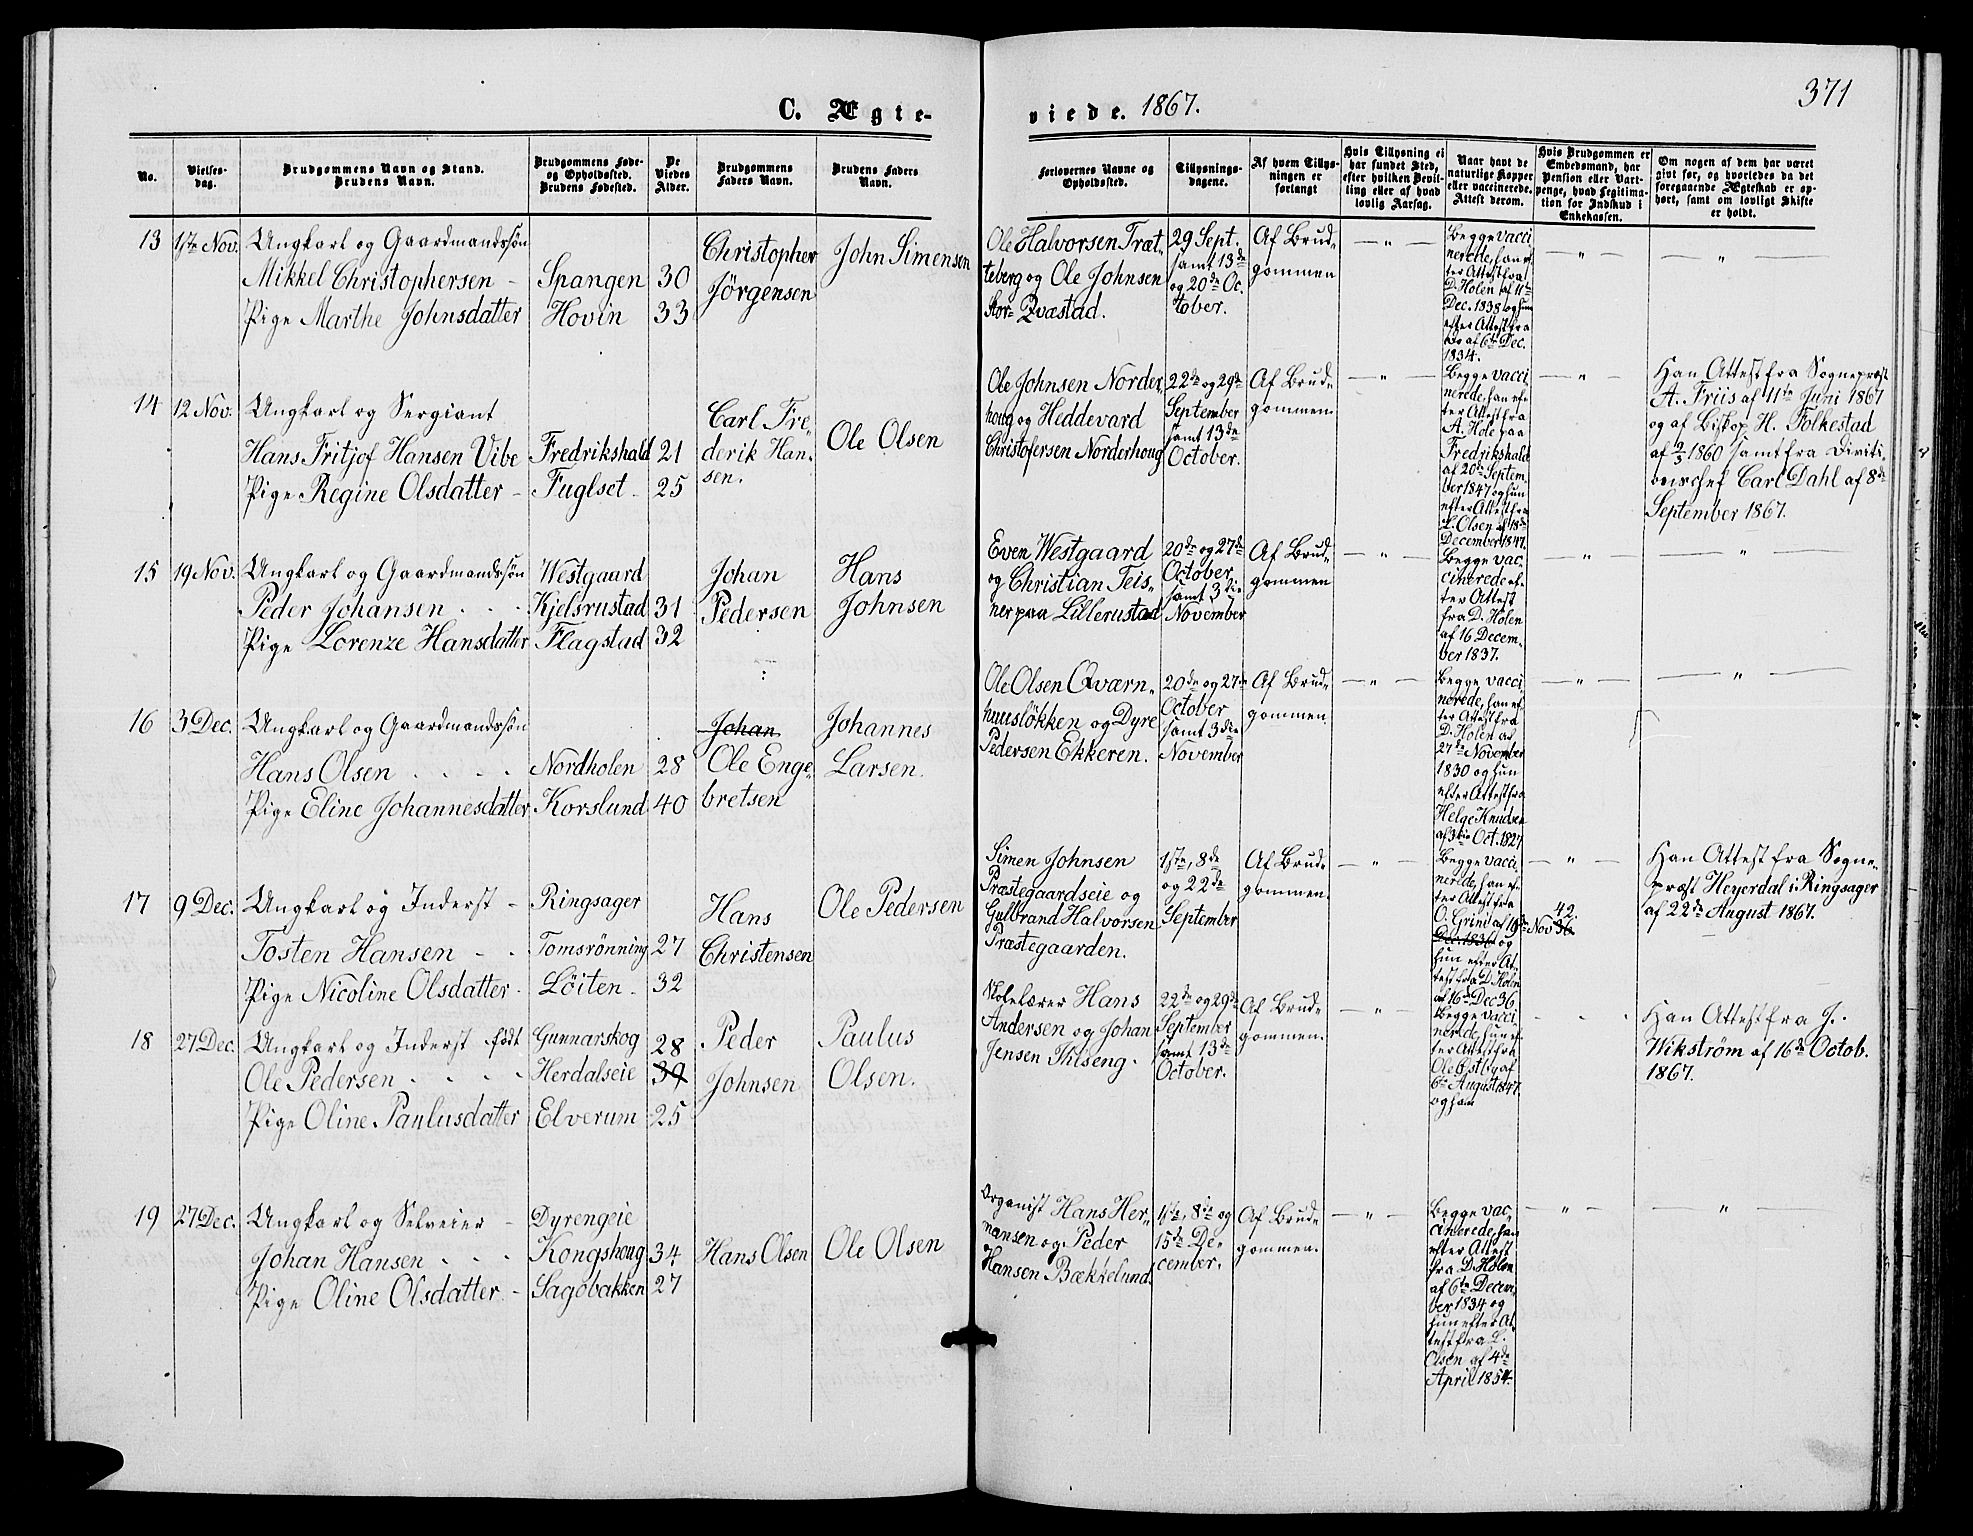 371
C. Ægte-
viede. 1867.
No.
Vielses-
dag.
Brudgommens Navn og Stand.
Brudens Navn.
Brudgommens Føde-
og Opholdssted.
Brudens Fødested.
De
Viedes
Alder.
Brudgommens
Faders Navn.
Brudens Faders
Navn.
Forlovernes Navne og
Opholdssted.
Tillysnings-
dagene.
Af hvem Tillys-
ningen er
forlangt
Hvis Tillysning ei
har fundet Sted,
efter hvilken Bevil-
ling eller af hvad
lovlig Aarsag.
Naar havt de
naturlige Kopper
eller vaccinerede.
Attest derom.
Hvis Brudgommen er
Embedsmand, har
Pension eller Vart-
penge, hvad Legitima-
tion for Indskud i
Enkekassen.
Om nogen af dem har været
givt før, og hvorledes da det
foregaaende Ægteskab er op-
hørt, samt om lovligt Skifte
er holdt.
13
1ste Nov.
Ungkarl og Gaardmandssøn
Mikkel Christophersen -
Pige Marthe Johnsdatter
Spangen
Hovin
30
33
Christopher
Jørgensen
John Simensen
Ole Halvorsen Træt-
teberg og Ole Johnsen
Stor- Qvæstad.
29 Sept.
samt 13de
og 20de Oc-
tober.
Af Brud-
gommen
— „ —
Begge vacci,
nerede, han ef-
ter Attest fra
D. Holen af 11te
Dec. 1838 og hun
efter Attest fra
Do af 6te Dec.
1834.
— „ —
— „ —
14
12 Nov.
Ungkarl og Sergiant
Hans Fritjof Hansen Vibe
Pige Regine Olsdatter -
Fredrikshald
Fuglset -
21
25
Carl Fre-
derik Han-
sen.
Ole Olsen
Ole Johnsen Norder,
houg og Heddevard
Christofersen Norderhoug
22de og 29de
September
samt 13de
October.
Af Brud-
gommen.
— „ —
Begge vacci,
nerede, han ef-
ter Attest fra
A. Hole paa
Fredrikshald
af 20de Septem-
ber 1847 og hun
efter Attest fra
L. Olsen af 18de
December 1847.
— „ —
Han Attest fra Sognepræst
A. Friis af 11te Juni 1867
og af Biskop H. Folkestad
af 2/3 1860 samt fra Diviti-
onschef Carl Dahl af 8de
September 1867.
15
19 Nov.
Ungkarl og Gaardmandssøn
Peder Johansen . . -
Pige Lorenze Hansdatter
Westgaard
Kjelsrustad
Flagstad
31
32
Johan
Pedersen
Hans
Johnsen
Even Westgaard
og Christian Teis-
ner paa Lillerustad
20de og 27de
October
samt 3die
November
Af Brud-
gommen
— „ —
Begge vac-
cinerede ef-
ter Attest
fra D. Holen
af 16 Decem-
ber 1837.
— „ —
— „ —
16
3 Dec.
Ungkarl og Gaardmandssøn
Hans Olsen . . . .
Pige Eline Johannesdatter
Nordholen
Korslund
28
40
Johan
Ole Enge-
bretsen
Johannes
Larsen.
Ole Olsen Qværn-
huusløkken og Dyre
Pedersen Ekkeren.
20de og 27de
October
samt 3die
November
Af Brud-
gommen.
— „ —
Begge vacci,
nerede, han ef-
ter Attest fra
D. Holen af
27de November
1830 og hun
efter Attest fra
Helge Knudsen
af 3die Oct. 1827
— „ —
— „ —
17
9 Dec.
Ungkarl og Inderst -
Tosten Hansen - -
Pige Nicoline Olsdatter -
Ringsager
Tomsrønning
Løiten -
27
32
Hans
Christensen
Ole Pedersen
Simen Johnsen
Præstegaardseie og
Gulbrand Halvorsen
Præstegaarden.
1ste, 8de
og 22de
September
Af Brud-
gommen.
— „ —
Begge vacci,
nerede, han ef-
ter Attest fra
O. Grini af 16de Nov 36 42.
Dec. 1836 og
hun efter At-
test fra D. Holen
af 16de Dec 36
— „ —
Han Attest fra Sogne-
præst Heyerdal i Ringsager
af 22de August 1867.
18
27 Dec.
Ungkarl og Inderst født
Ole Pedersen . . . -
Pige Oline Paulusdatter
Gunnarskog
Herdalseie
Elverum
28
39
25
Peder
Johnsen
Paulus
Olsen.
Skolelærer Hans
Andersen og Johan
Jensen Thlseng.
22de og 29de
September
samt 13de
October.
Af Brud-
gommen.
— „ —
Begge vacci
nerede, hun ef-
ter Attest fra
Ole Østby af
6te August 1847
og han
Han Attest fra J.
Wikstrøm af 16de Octob.
1867.
19
27 Dec.
Ungkarl og Selveier -
Johan Hansen - -
Pige Oline Olsdatter -
Dyrengeie
Kongshoug
Sagbakken
34
27
Hans Olsen
Ole Olsen
Organist Hans Her-
mansen og Peder
Hansen Bækkelund.
1ste, 8de og
15de De-
cember.
Af Brud-
gommen.
— „ —
Begge vac-
cinerede, han
efter Attest
fra D. Holen
af 6te Decem-
ber 1834 og
hun efter At-
test fra L.
Olsen af 4de
April 1854.
— „ —
— „ —